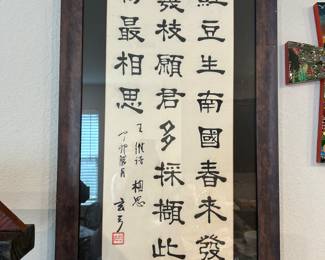 紅豆生南國春來發
幾枝願君多採擷此
物最相思
王維詩 相思
丁卯 月